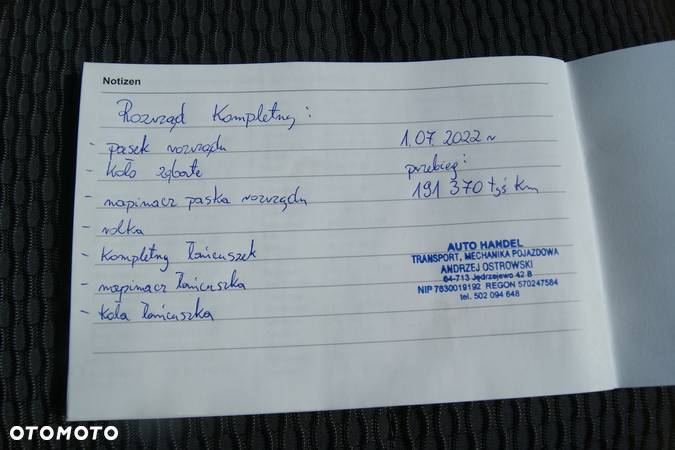 Notizen
Rozrząd Kompletny:
- pasek rozrządu
1.07.2022 r
- Koło zębate
przebieg:
- napinacz paska rozrządu
191 370 tyś km
- rolka
- Kompletny łańcuszek
- napinacz łańcuszka
- Koła łańcuszka
AUTO HANDEL
TRANSPORT, MECHANIKA POJAZDOWA
ANDRZEJ OSTROWSKI
64-713 Jędrzejewo 42 B
NIP 7630019192 REGON 570247584
tel. 502 094 648
OTOMOTO